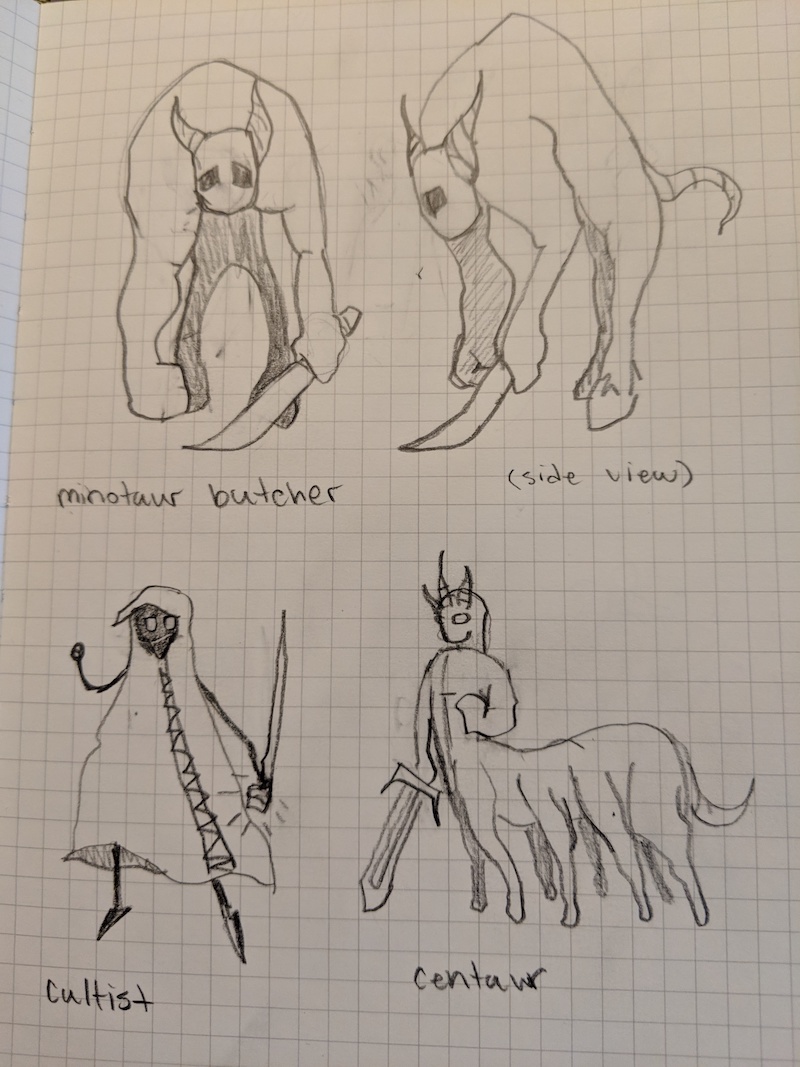 minotaur butcher
(side view)
cultist
centaur